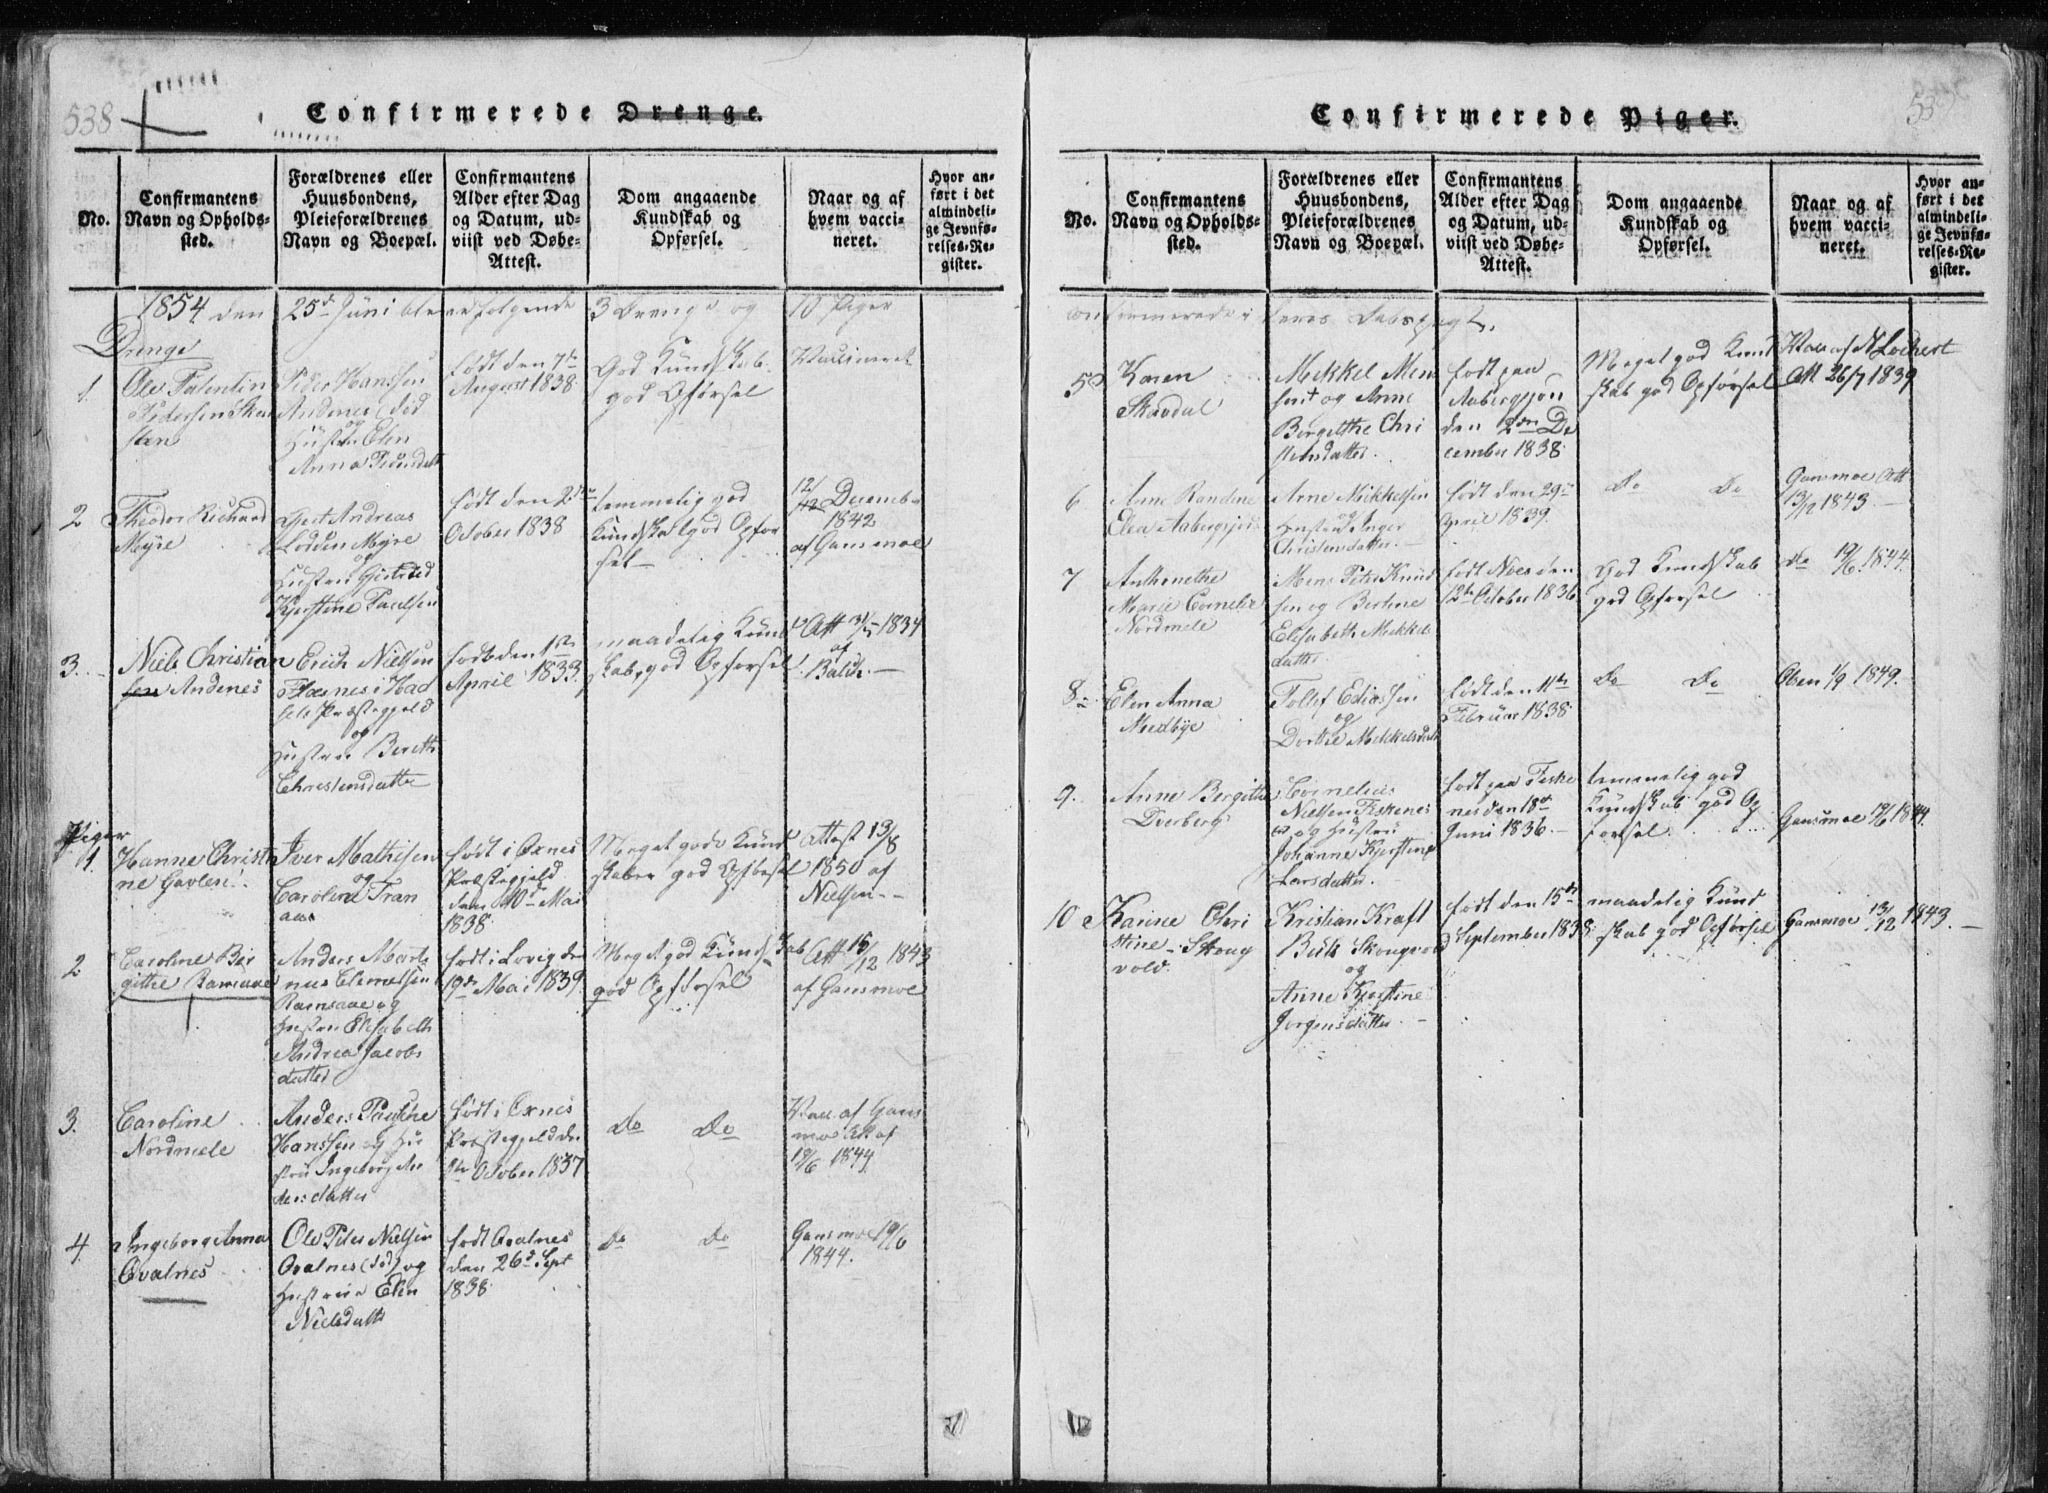 538
Confirmerede Drenge.
No.
Confirmantens
Navn og Opholds-
sted.
Forældrenes eller
Huusbondens,
Pleieforældrenes
Navn og Boepæl.
Confirmantens
Alder efter Dag
og Datum, ud-
viist ved Døbe-
Attest.
Dom angaaende
Kundskab og
Opførsel.
Naar og af
hvem vacci-
neret.
Hvor an-
ført i det
almindeli-
ge Jevnfø-
relses-Re-
gister.
1854 den 25de Juni bleve følgende 3 Drenge og 10 Piger
Drenge
1.
Ole
Pedersen
Peder Hanssen
Andenes død
og
Hustru Elen
Anna
født den 7de
August 1838
God Kundskab
god Opførsel
Vaccineret
2
Theodor Richard
Myre
Gjert Andreas
Lodden Myre
og
Hustru
Kjerstine Paulsen
født den 2den
October 1838
temmelig god
Kundskab god Opfør
sel
12/12 Decemb
1842
af Gansmoe
3.
Niels Christian
sen Andenes
Erich Nielsen
i Had
sels Præstegjeld
og
Hustru Bereth
Christensdatter
født den 1ste
April 1833.
maadelig Kund
skab, god Opførsel
Att 31/5 1834
af
Balch.
Piger
1.
Hanne Christi
ne Gavlen
Iver Mathisen
og
Caroline Tran
aas
født i Øxnes
Præstegjeld
den 10de Mai
1838
Meget gode Kund
skaber god Opførsel
Attest 13/8
1850 af
Nielsen
2
Caroline Bir
githe Ramsaae
Anders Marti
nus Clemetsen
Ramsaae og
Hustru Elisabeth
Andrea Jacobs
datter
født i den
19de Mai 1839
Meget god Kundskab
god Opførsel
Att 15/12 1843
af Gansmoe
3.
Caroline
Nordmele
Anders
Hanssen og Hu
stru Ingeborg An
dersdatter
født i Øxnes
Præstegjeld den
October 1837
Do Do
Vacc af Gans
moe Att af
19/6 1844
4.
Ingeborg Anna
Qvalnes
Ole Peter Nielsen
Qvalnes (død) og
Hustrue Elen
Nielsdatter
født Qvalnes
den 26de Sept
1838
Do Do
Gansmoe 19/6
1844.
539
Confirmerede Piger.
No.
Confirmantens
Navn og Opholds-
sted.
Forældrenes eller
Huusbondens,
Pleieforældrenes
Navn og Boepæl.
Confirmantens
Alder efter Dag
og Datum, ud-
viist ved Døbe-
Attest.
Dom angaaende
Kundskab og
Opførsel.
Naar og af
hvem vacci-
neret.
Hvor an-
ført i det
almindeli-
ge Jevnfø-
relses-Re-
gister.
confirmerede i deres Daabspagt.
5
Karen
Skavdal
Mekkel Men
sen og Anne
Bergitthe Chri
stensdatter.
født paa
Aabergsjord
den 2den De
cember 1838
Meget god Kund
skab god Opførsel
Vacc af N Lochert
Att 26/7 1839
6
Anne Randine
Elea Aabergsjord
Arne Mickkelsen
og
Hustru Inger
Christensdatter.
født den 29de
April 1839.
Do Do
Gansmoe Att
13/12 1843.
7
Anthonethe
Marie Cornelie
Nordmele
Mens Peter Knud
sen og Bertine
Elisabeth Mekkels
datter
født den
12te October 1836
God Kundskab
god Opførsel
do 19/6 1844.
8
Elen Anna
Medbye
Tollef Ediassen
og
Dorthe Mekkelsdatt
født den 11te
Februar 1838
Do Do
Oben 1/9 1849.
9.
Anne Bergithe
Dverberg
Cornelius
Nielsen Fiskenes
og Hustru
Johanne Kjerstine
Larsdatter.
født paa Fiske
nes den 18de
Juni 1836.
temmelig god
Kundskab god Op
førsel
Gansmoe 19/6 1844.
10
Hanne Chri
stine Skoug
vold.
Kristian Kraft
Skougvold
og
Anne Kjerstine
Jørgensdatter
født den 15de
September 1838
maadelig Kund
skab god Opførsel
Gansmoe 13/12 1843.